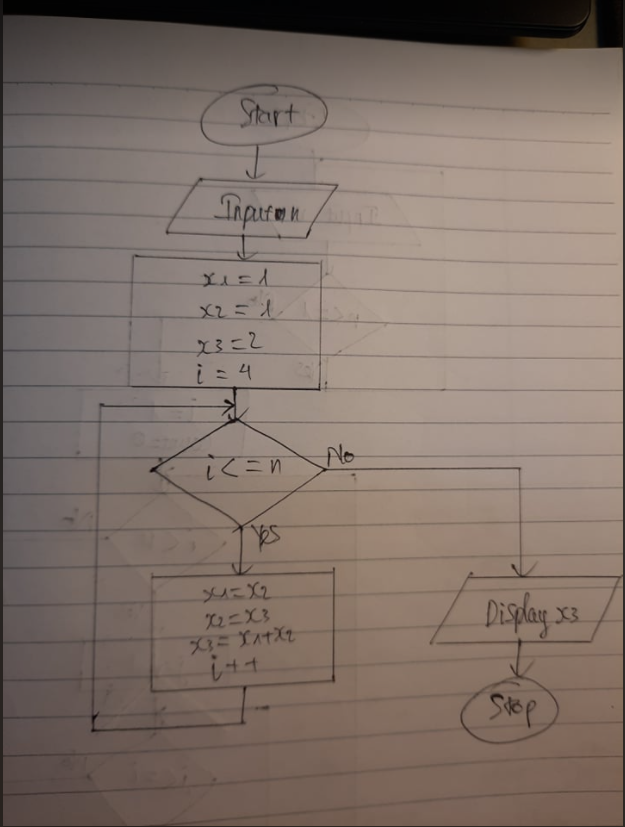 Start
Input n
x1=1
x2=1
x3=2
i=4
i<=n
No
Yes
x1=x2
x2=x3
x3=x1+x2
i++
Display x3
Stop